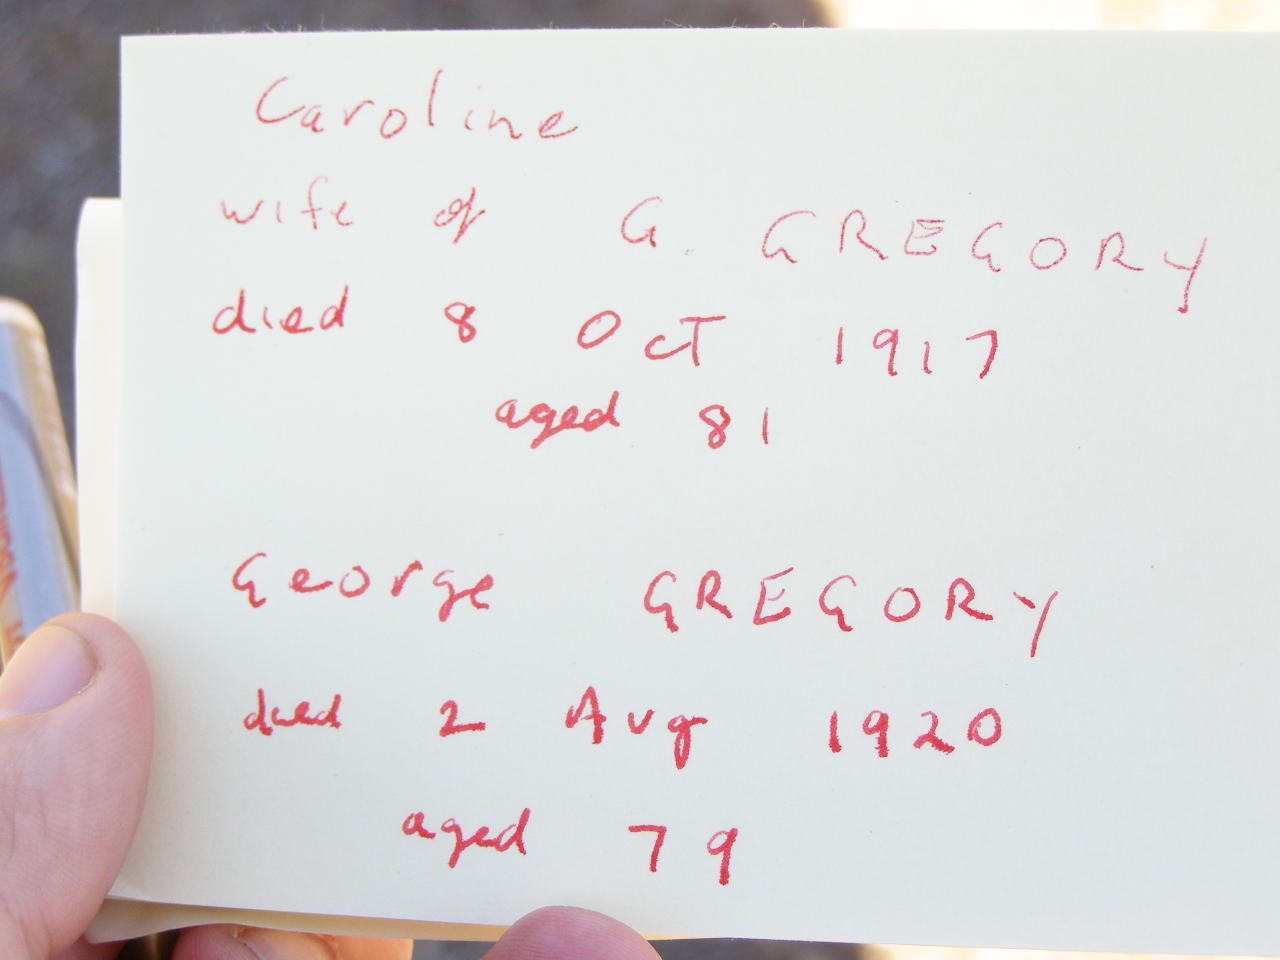 Caroline
wife of G. GREGORY
died 8 Oct 1917
aged 81
George GREGORY
died 2 Aug 1920
aged 79